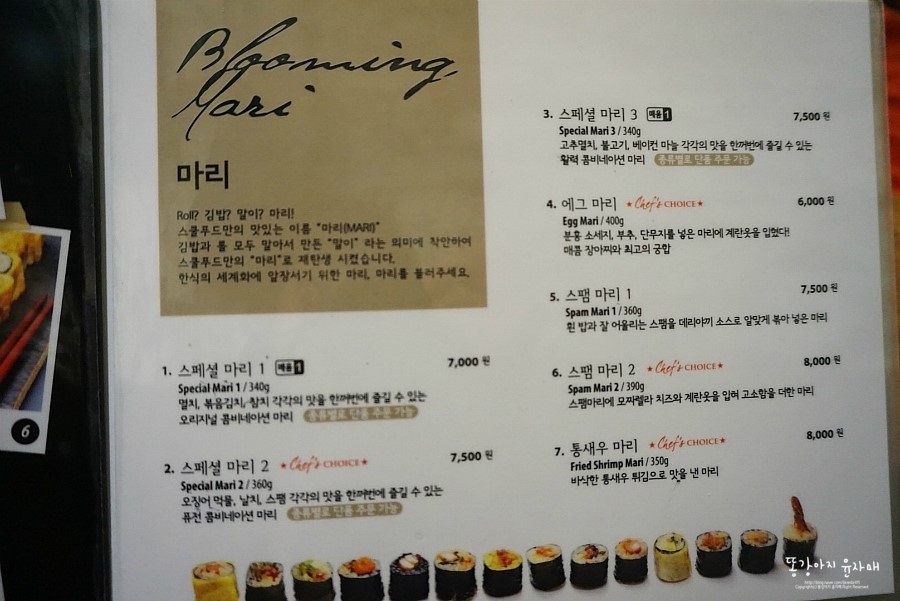 Blooming
Mari
마리
Roll? 김밥? 말이? 마리!
스쿨푸드만의 맛있는 이름 "마리(MARI)"
김밥과 롤 모두 말아서 만든 "말이" 라는 의미에 착안하여
스쿨푸드만의 "마리"로 재탄생 시켰습니다.
한식의 세계화에 앞장서기 위한 마리, 마리를 불러주세요.
1. 스페셜 마리 1 매움1 7,000 원
Special Mari 1 / 340g
멸치, 볶음김치, 참치 각각의 맛을 한꺼번에 즐길 수 있는
오리지널 콤비네이션 마리 종류별로 단품 주문 가능
2. 스페셜 마리 2 ★Chef's CHOICE★ 7,500 원
Special Mari 2 / 360g
오징어 먹물, 날치, 스팸 각각의 맛을 한꺼번에 즐길 수 있는
퓨전 콤비네이션 마리 종류별로 단품 주문 가능
3. 스페셜 마리 3 매움1 7,500 원
Special Mari 3 / 340g
고추멸치, 불고기, 베이컨 마늘 각각의 맛을 한꺼번에 즐길 수 있는
활력 콤비네이션 마리 종류별로 단품 주문 가능
4. 에그 마리 ★Chef's CHOICE★ 6,000 원
Egg Mari / 400g
분홍 소세지, 부추, 단무지를 넣은 마리에 계란옷을 입혔다!
매콤 장아찌와 최고의 궁합
5. 스팸 마리 1 7,500 원
Spam Mari 1 / 360g
흰 밥과 잘 어울리는 스팸을 데리야끼 소스로 알맞게 볶아 넣은 마리
6. 스팸 마리 2 ★Chef's CHOICE★ 8,000 원
Spam Mari 2 / 390g
스팸마리에 모짜렐라 치즈와 계란옷을 입혀 고소함을 더한 마리
7. 통새우 마리 ★Chef's CHOICE★ 8,000 원
Fried Shrimp Mari / 350g
바삭한 통새우 튀김으로 맛을 낸 마리
6
똥강아지 윤자매